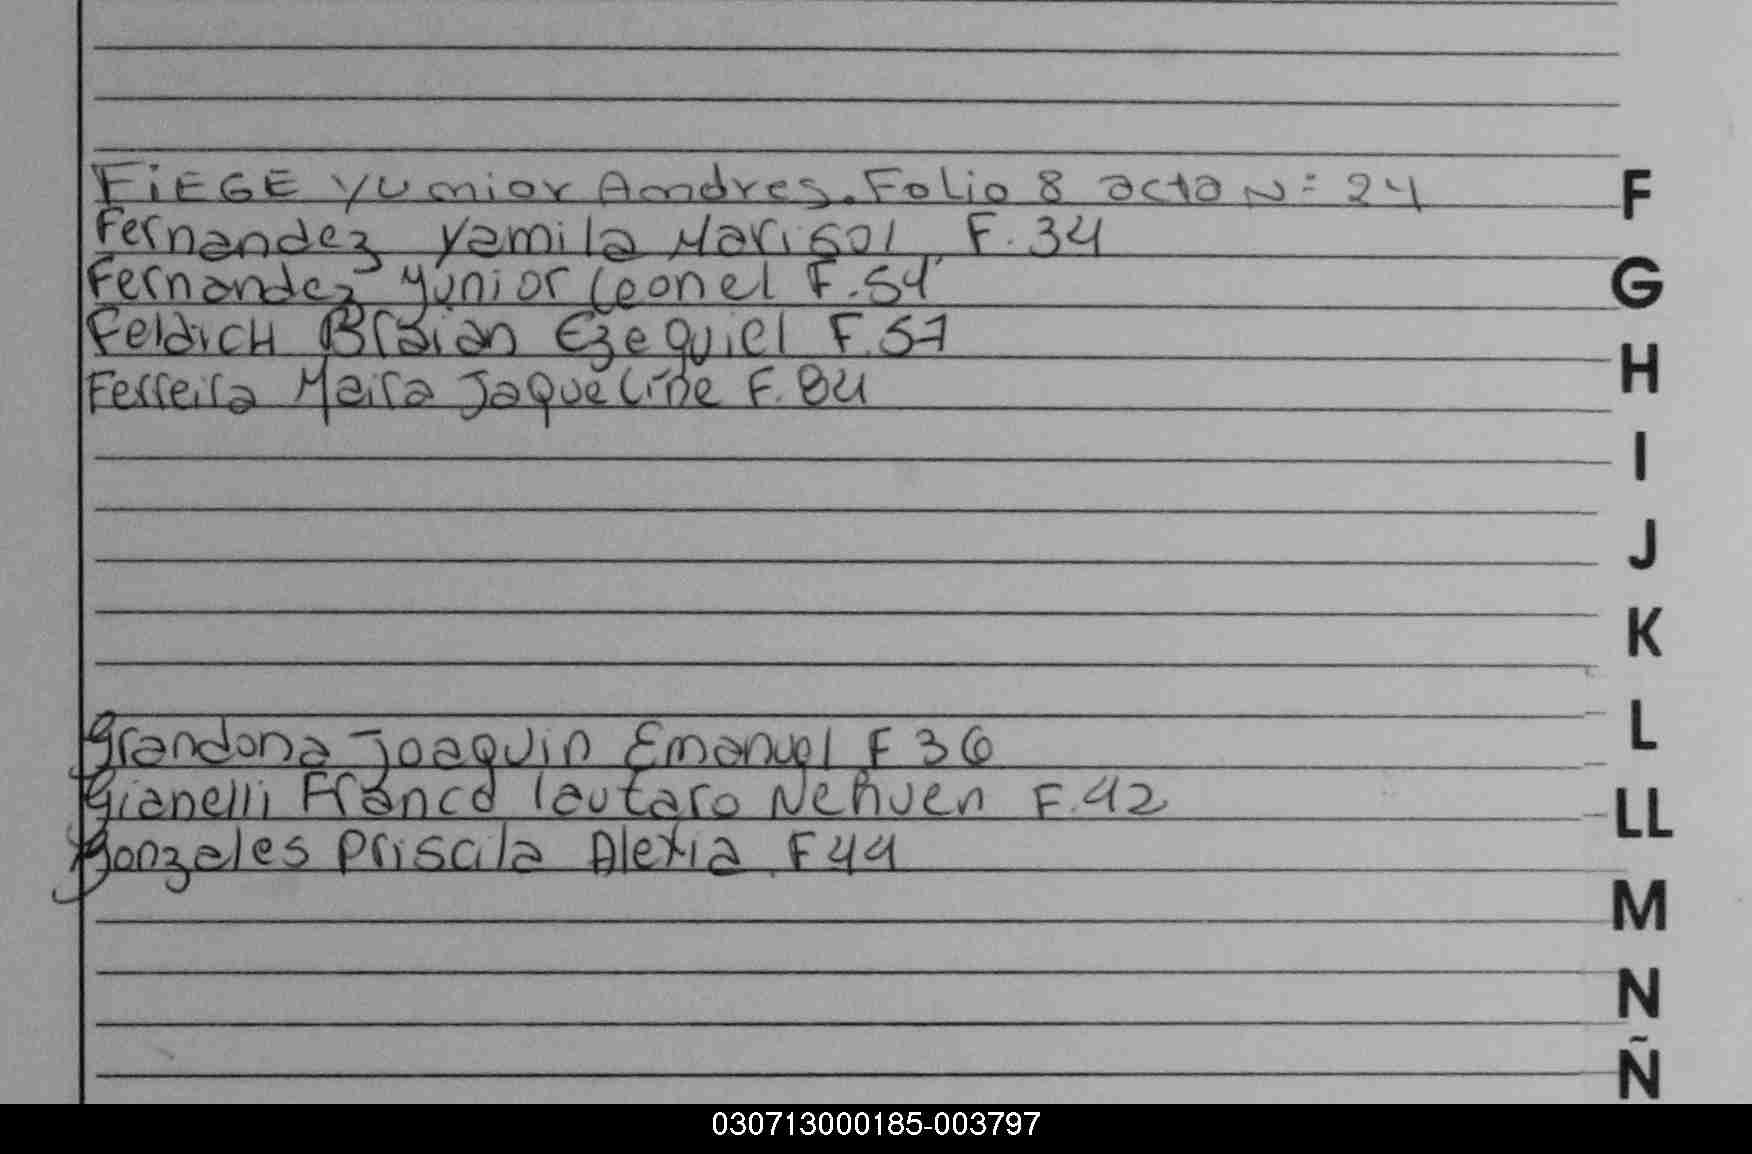 FiEGE Yunior Andres. Folio 8 acta N= 24
Fernandez Yamila Marisol F. 34
Fernandez Yunior Leonel F. 54
Feldich Braian Ezequiel F. 57
Ferreira Maira Jaqueline F. 84
Grandona Joaquin Emanuel F 36
Gianelli Franco lautaro Nehuen F. 42
Gonzales Priscila Alexia F 44
F
G
H
I
J
K
L
LL
M
N
Ñ
030713000185-003797